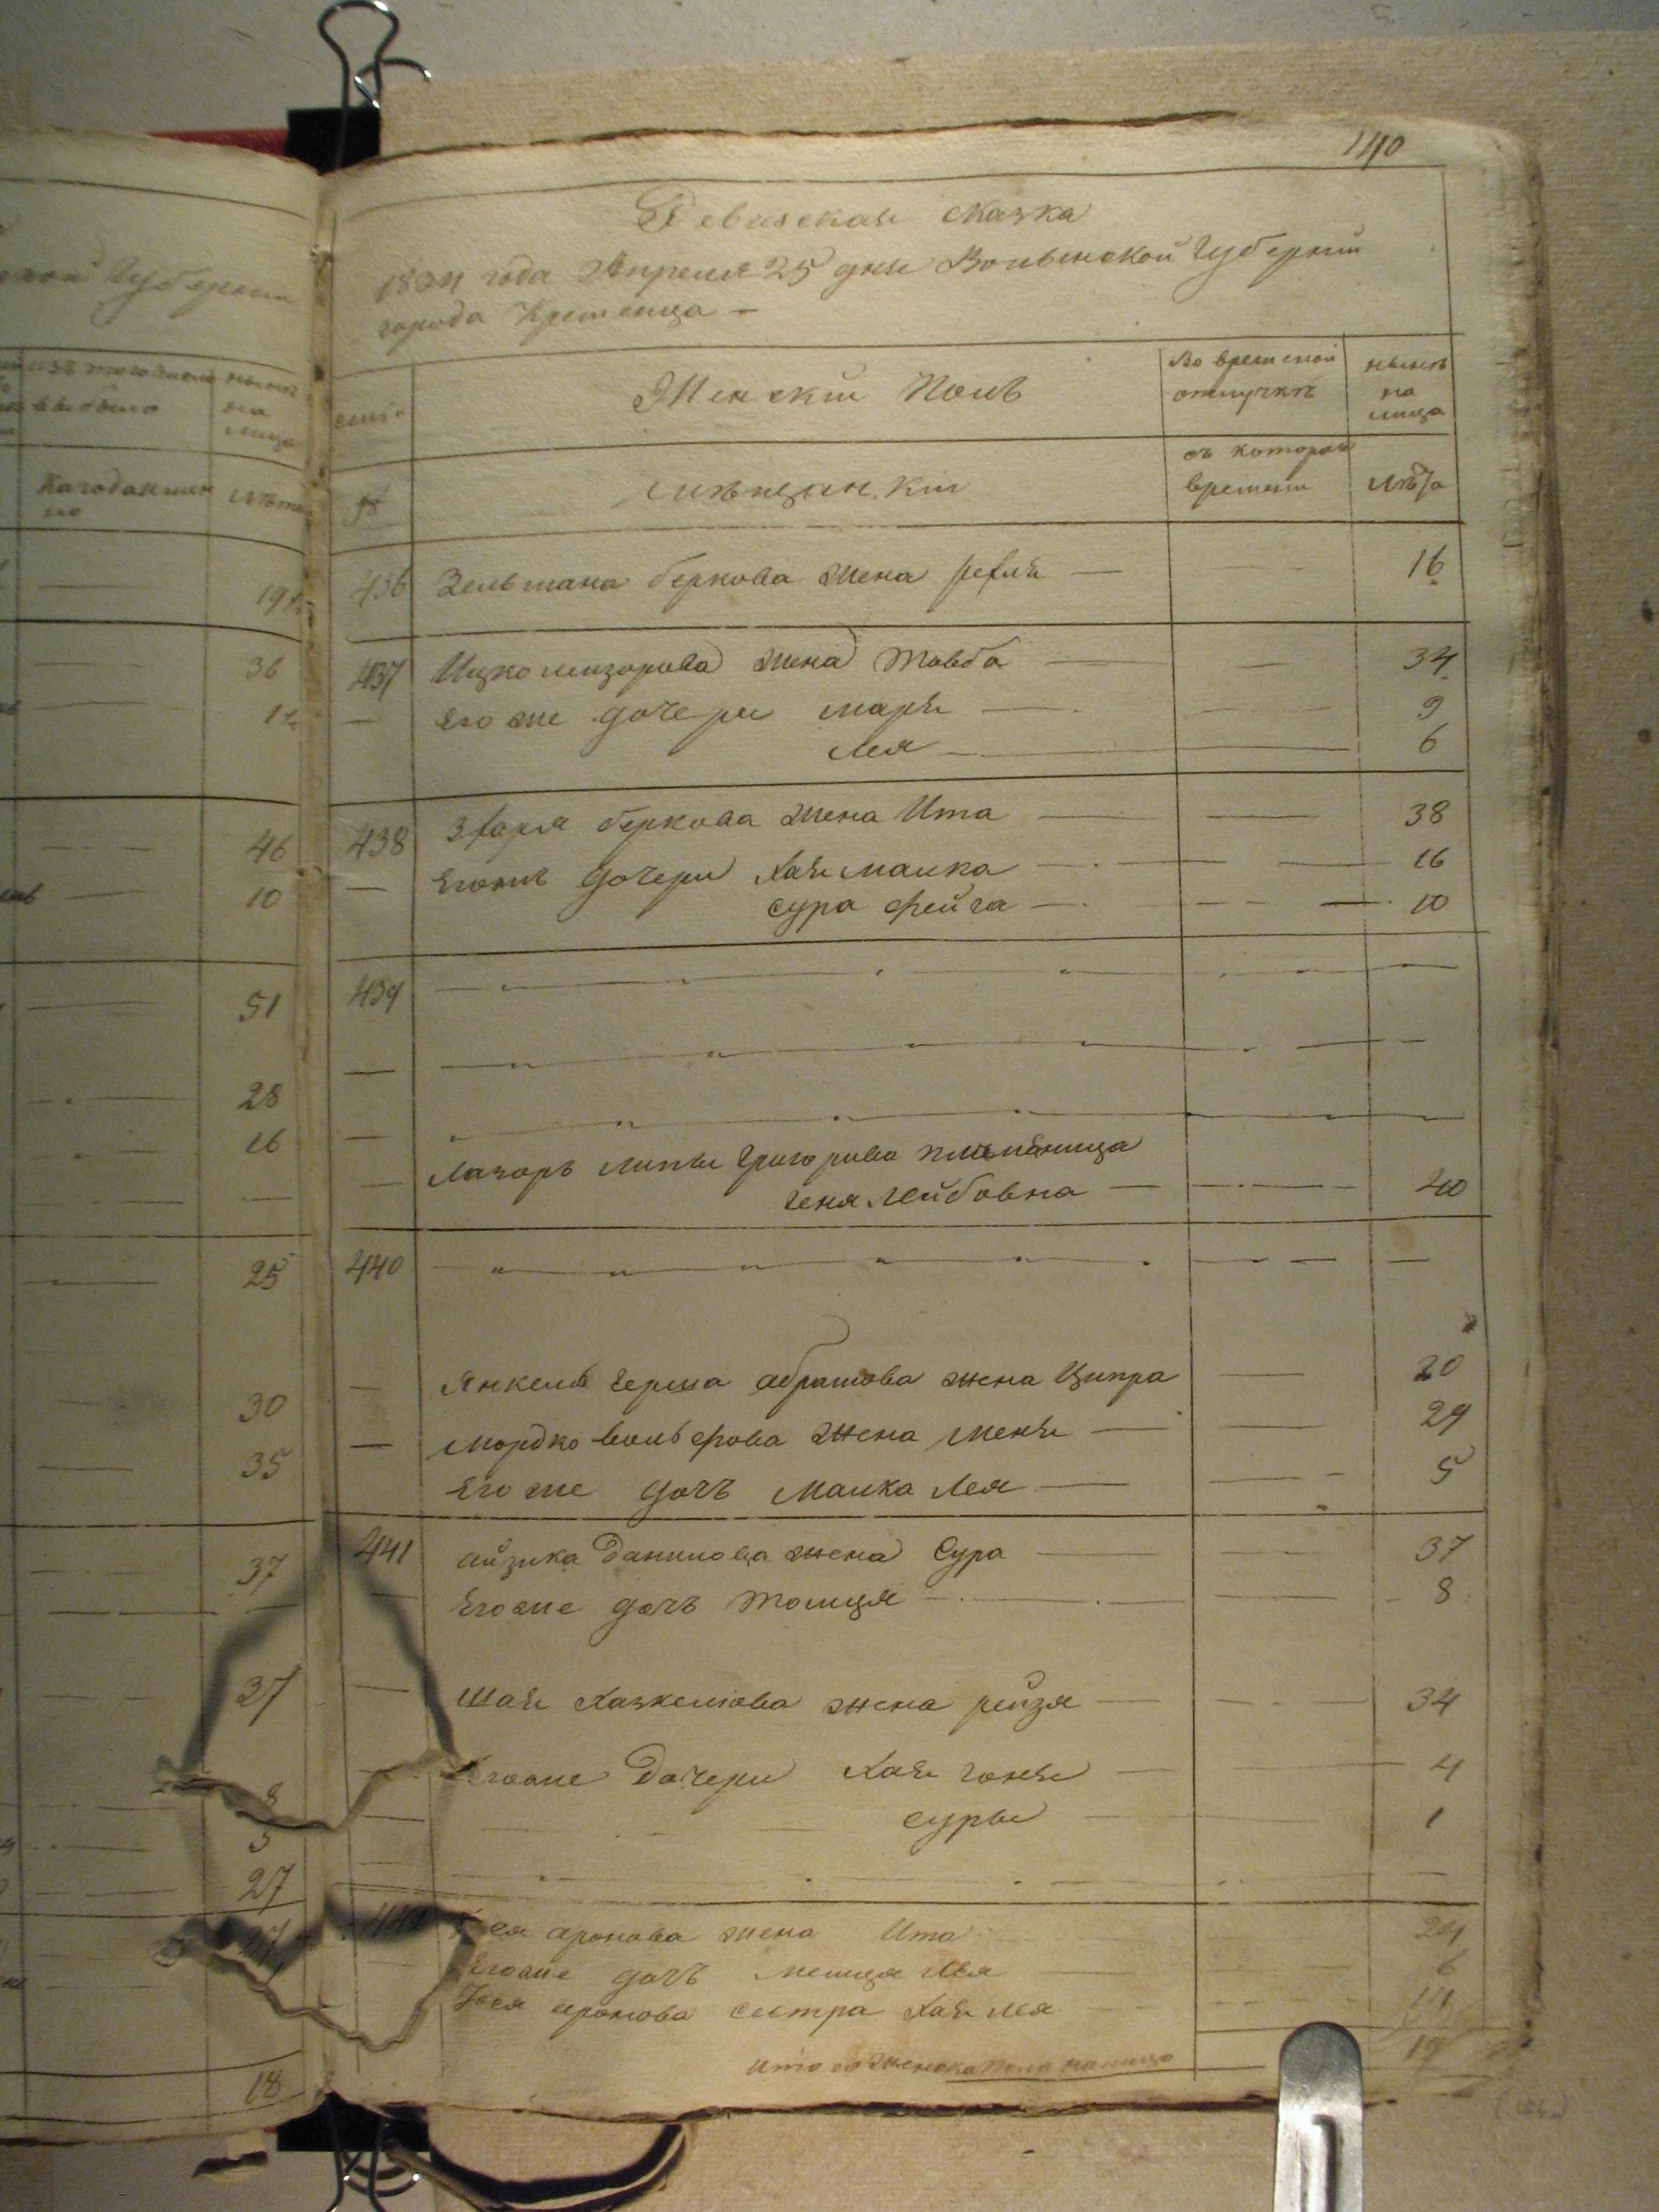 140
Ревизская сказка
1834 года Апреля 25 дня Волынской Губернии
города Кременца
Женский Полъ
Во временной отлучкѣ
нынѣ на лицо
семьи
№
мѣщанки
съ котораго времени
Лѣта
436 Зельмана беркова жена 16
437 Ицко лейзорова жена Товба 34
— Его же дочери Марья 9
Лея 6
438 беркова жена Ита 38
— Его же дочери Хая Малка 16
Сура Фейга 10
439
— Лазоръ Липы Григорова племѣница
Геня Лейбовна 40
440
— Янкеля Герша абрамова жена Ципра 20
— Мордко вольфова жена Меня 29
Его же дочь Малка Лея 5
441 айзика Данилова жена Сура 37
— Его же дочь Томця 8
— Шая Хаскелиова жена рейзя 34
— Его же Дочери Хая Геня 4
— Суры 1
442 аронова жена Ита 24
— Его же дочь Лея 6
аронова сестра Хая Лея 14
итого женска пола налицо 19
ской Губернии
изъ того числа выбыло
нынѣ на лицо
Когда именно
Лѣта
19
36
46
10
51
28
16
25
30
35
37
37
8
5
27
18